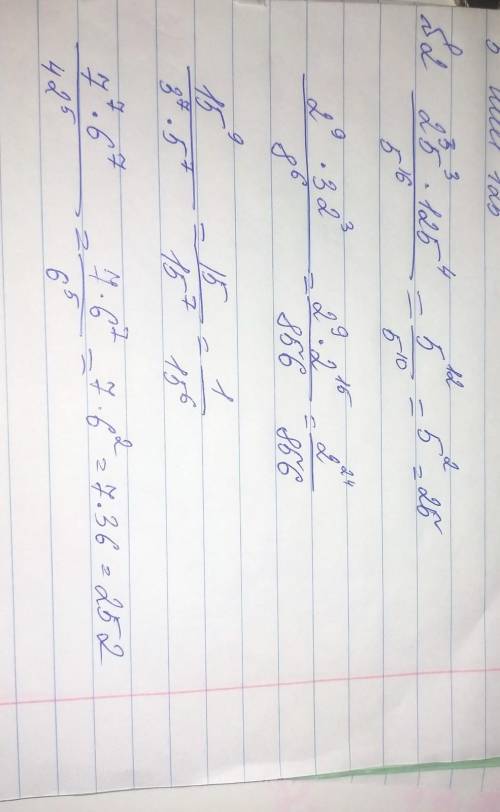 25³ · 125⁴ / 5¹⁶ = 5¹² / 5¹⁰ = 5² = 25
2⁹ · 32³ / 8⁶ = 2⁹ · 2¹⁵ / 856 = 2²⁴ / 856
15⁹ / 3⁷ · 5⁷ = 15 / 15⁷ = 1 / 15⁶
7⁷ · 6⁷ / 42⁵ = 7 · 6⁷ / 6⁵ = 7 · 6² = 7 · 36 = 252